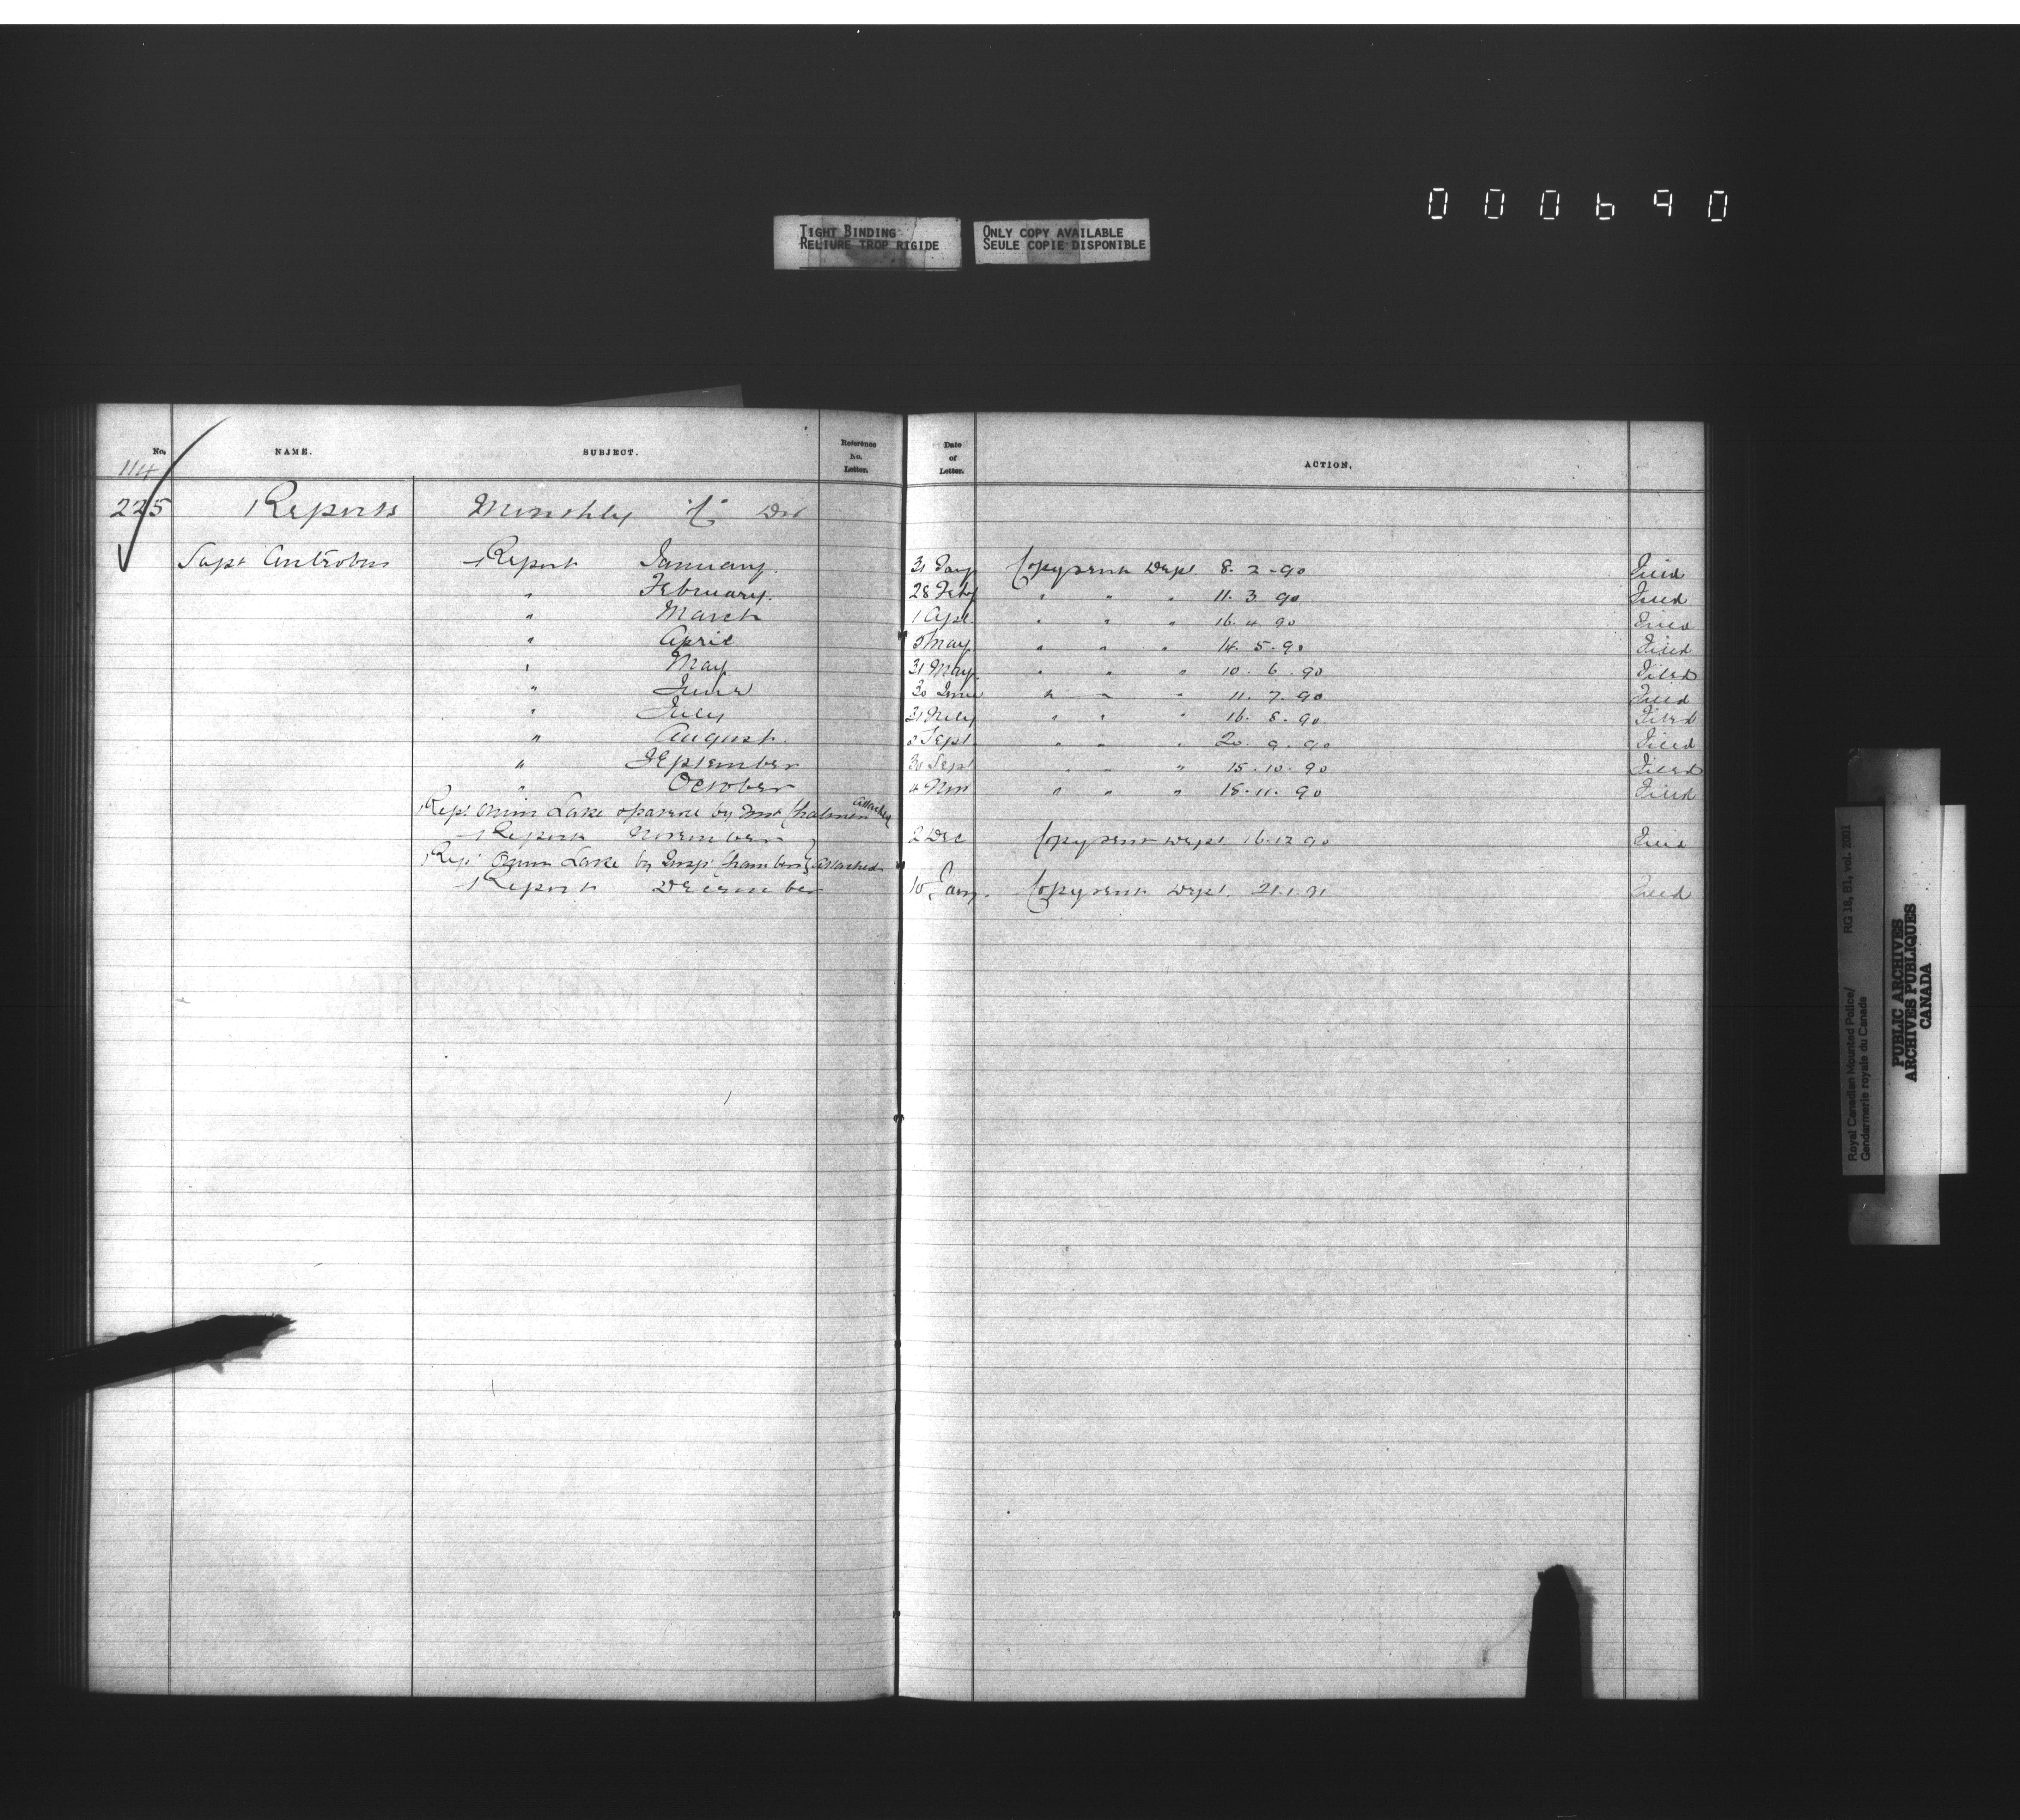 000690
TIGHT BINDING
RELIURE TROP RIGIDE
ONLY COPY AVAILABLE
SEULE COPIE DISPONIBLE
No. NAME. SUBJECT. Reference No. Letter. Date of Letter. ACTION.
114
225 Reports Monthly "C" Div
Supt Antrobus Report January. 31 Jany Copy sent Dept. 8. 2. 90 Filed
" February. 28 Feby " " " 11. 3 90 Filed
" March 1 Apl " " " 16. 4. 90 Filed
" April 5 May " " " 14. 5. 90 Filed
" May 31 May " " " 10. 6. 90 Filed
" June 30 June " " " 11. 7. 90 Filed
" July 31 July " " " 16. 8. 90 Filed
" August. 5 Sept " " " 20. 9. 90 Filed
" September 30 Sept " " " 15. 10. 90 Filed
" October 4 Nov " " " 18. 11. 90 Filed
Rept. Onion Lake by attached
Report November 2 Dec Copy sent Dept. 16. 12 90 Filed
Rept Onion Lake by Insp. Chambers attached
Report December 10 Jany. Copy sent Dept. 21. 1. 91 Filed
Royal Canadian Mounted Police/ RG 18, B1, vol. 2001
Gendarmerie royale du Canada
PUBLIC ARCHIVES
ARCHIVES PUBLIQUES
CANADA